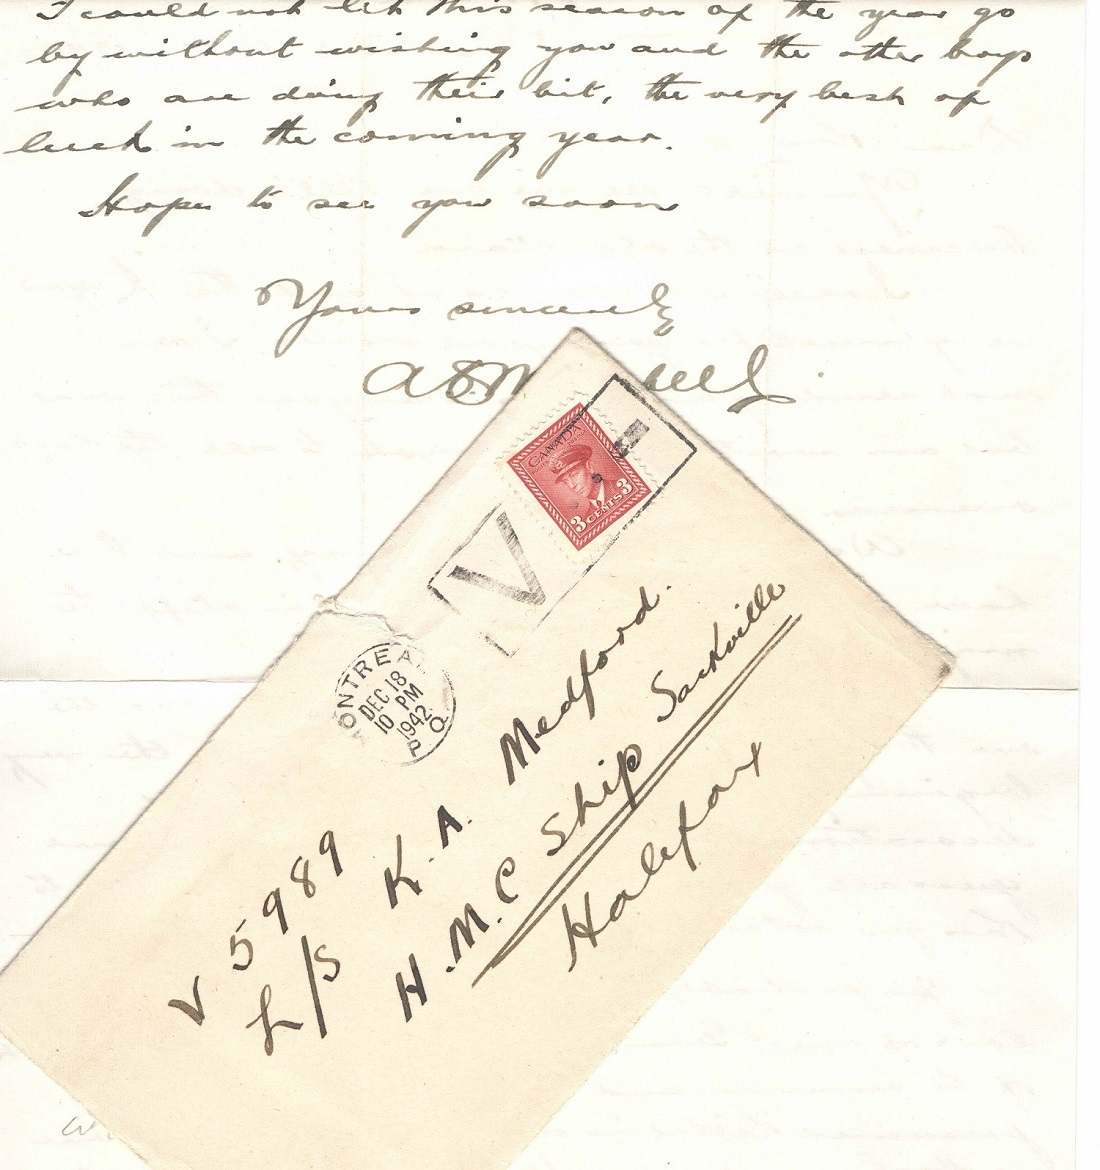 I could not let this season of the year go
by without wishing you and the other boys
who are doing their bit, the very best of
luck in the coming year.
Hope to see you soon
Yours sincerely
CANADA
3 CENTS 3
V
MONTREAL
DEC 18
10 PM
1942
P.Q.
V 5989
L/S K. A. Medford.
H.M.C Ship Sackville
Halifax